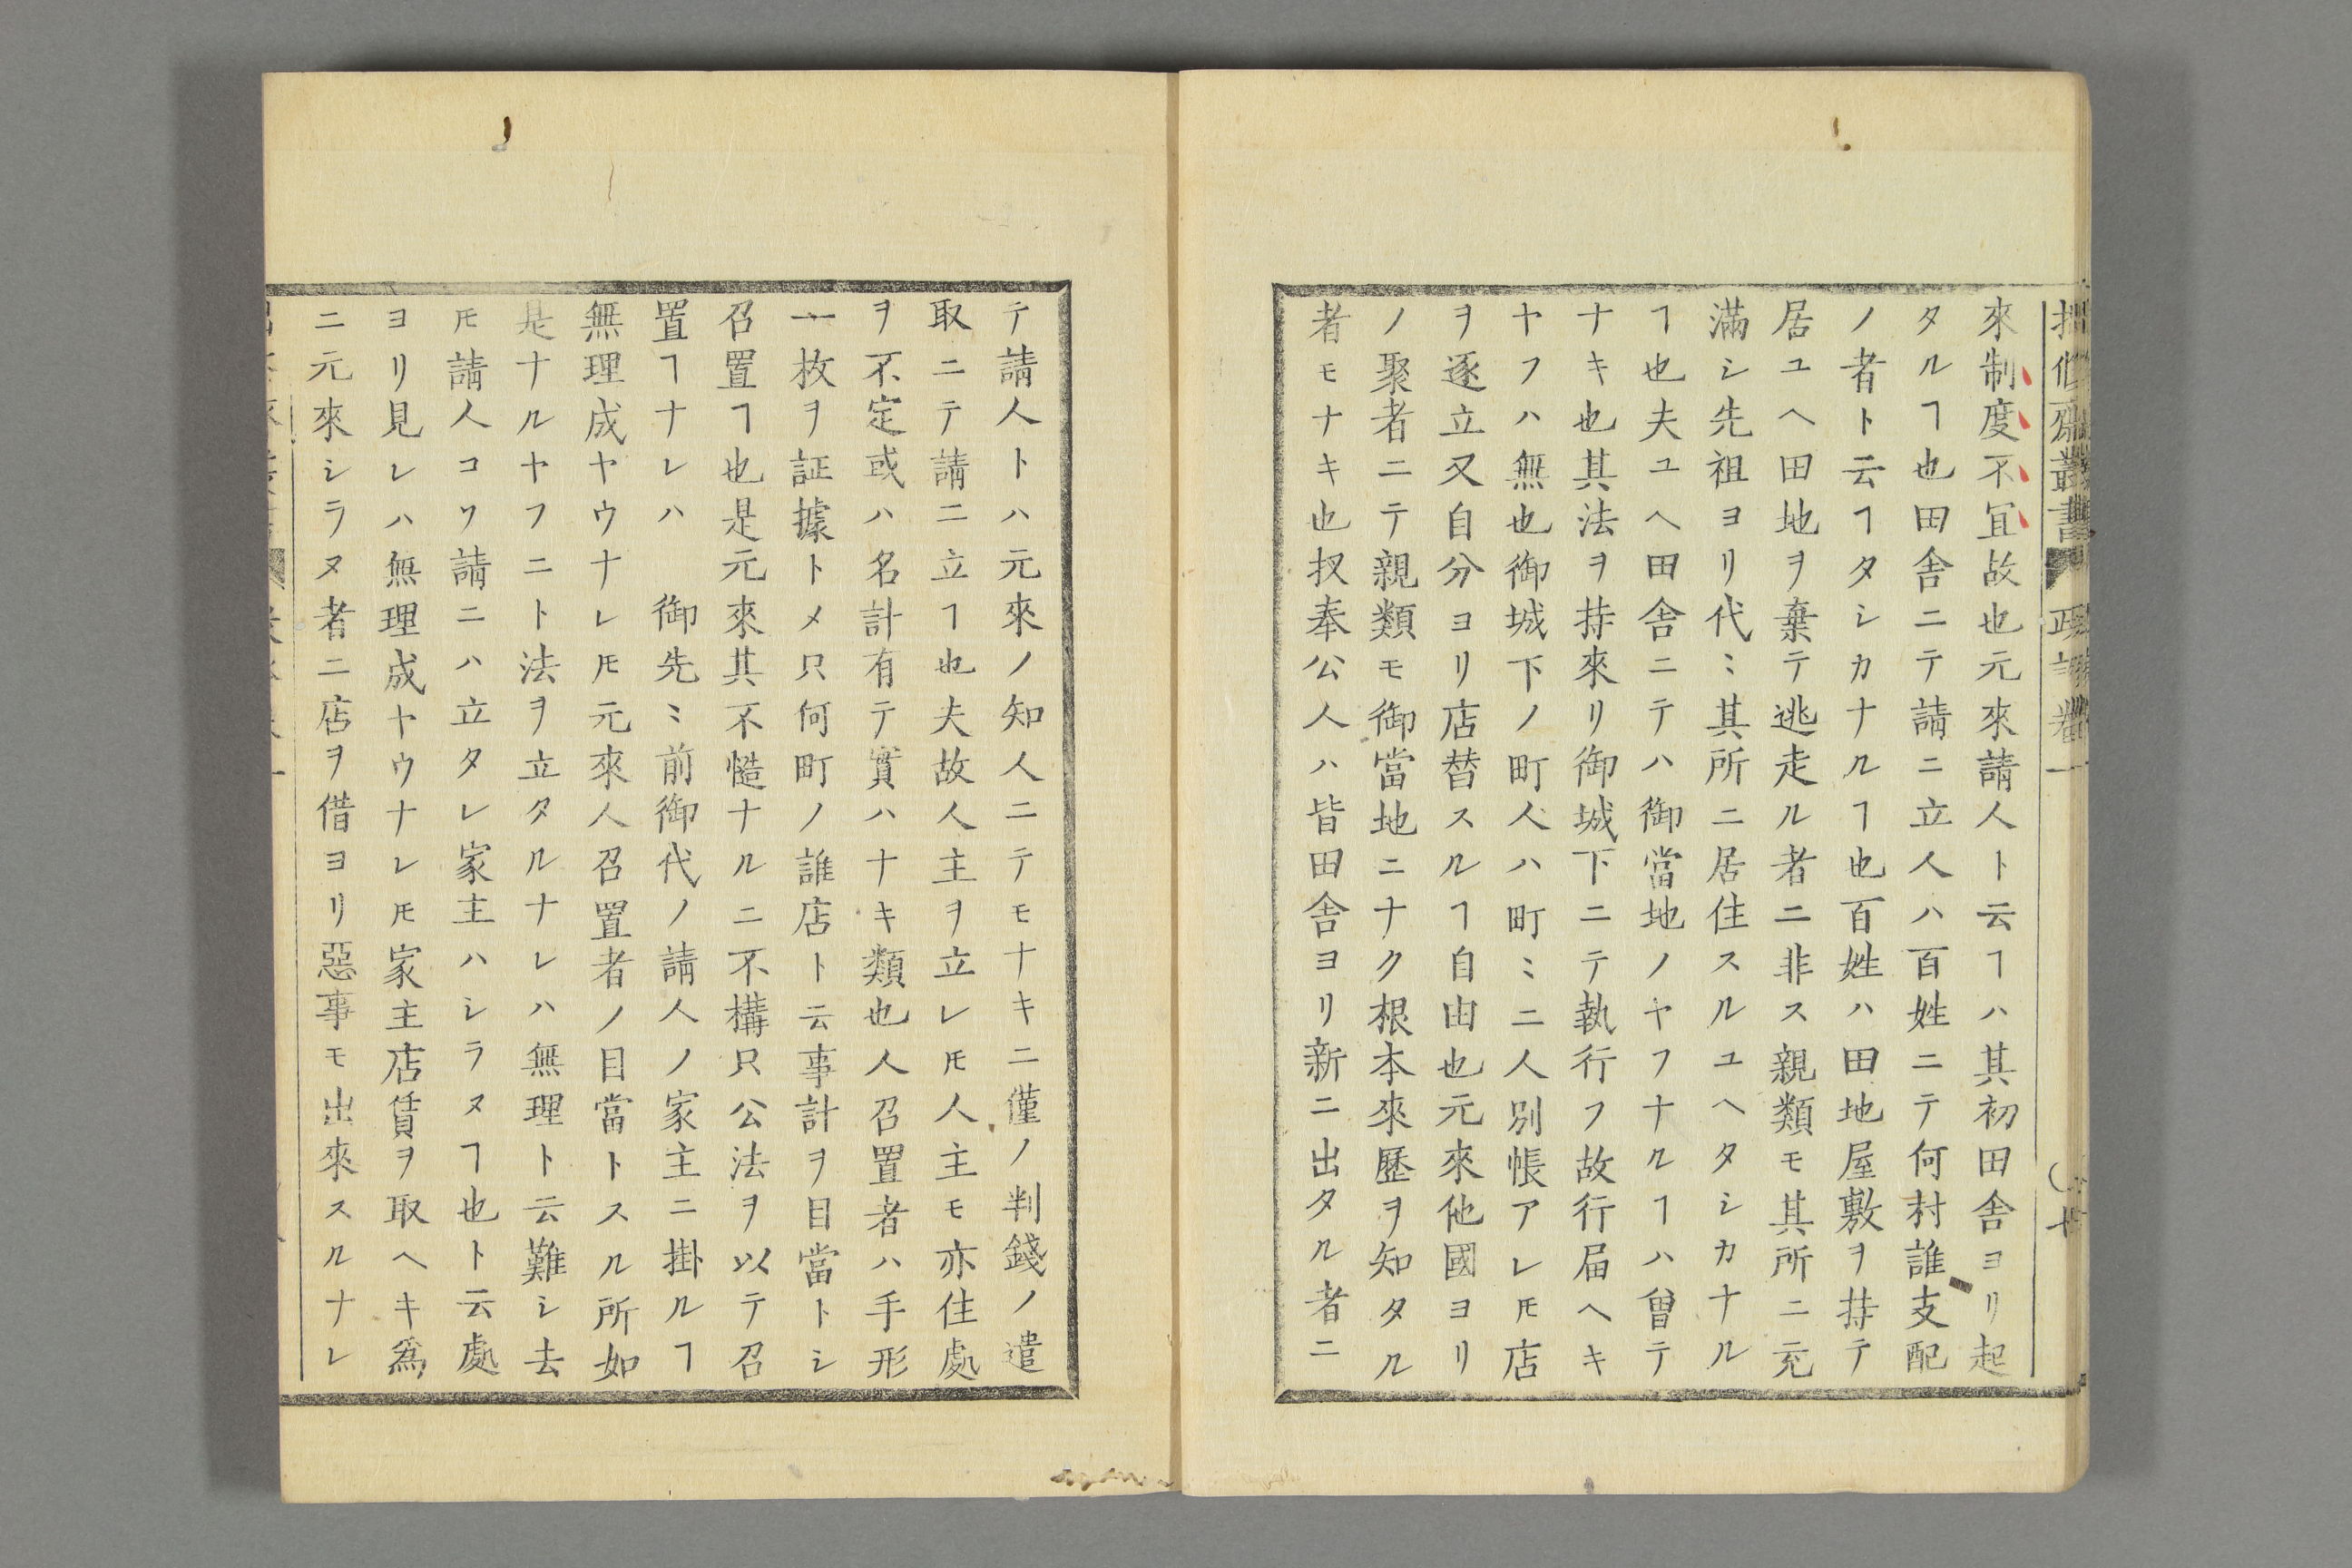 叢書 政談卷一
來制度不冝故也元來請人ト云ヿハ其初田舎ヨリ起
タルヿ也田舎ニテ請ニ立人ハ百姓ニテ何村誰支配
ノ者ト云ヿタシカナルヿ也百姓ハ田地屋敷ヲ持テ
居ユヘ田地ヲ棄テ逃走ル者ニ非ス親類モ其所ニ充
滿シ先祖ヨリ代〻其所ニ居住スルユヘタシカナル
ヿ也夫ユヘ田舎ニテハ御當地ノヤフナルヿハ曽テ
ナキ也其法ヲ持來リ御城下ニテ執行フ故行届ヘキ
ヤフハ無也御城下ノ町人ハ町〻ニ人別帳アレ𪜈店
ヲ逐立又自分ヨリ店替スルヿ自由也元來他國ヨリ
ノ聚者ニテ親類モ御當地ニナク根本來歴ヲ知タル
者モナキ也扠奉公人ハ皆田舎ヨリ新ニ出タル者ニ
テ請人トハ元來ノ知人ニテモナキニ僅ノ判錢ノ遣
取ニテ請ニ立ヿ也夫故人主ヲ立レ𪜈人主モ亦住處
ヲ不定或ハ名計有テ實ハナキ類也人召置者ハ手形
一枚ヲ証據トメ只何町ノ誰店ト云事計ヲ目當トシ
召置ヿ也是元來其不慥ナルニ不構只公法ヲ以テ召
置ヿナレハ　御先〻前御代ノ請人ノ家主ニ掛ルヿ
無理成ヤウナレ𪜈元來人召置者ノ目當トスル所如
是ナルヤフニト法ヲ立タルナレハ無理ト云難シ去
𪜈請人コソ請ニハ立タレ家主ハシラヌヿ也ト云處
ヨリ見レハ無理成ヤウナレ𪜈家主店賃ヲ取ヘキ爲
ニ元來シラヌ者ニ店ヲ借ヨリ惡事モ出來スルナレ